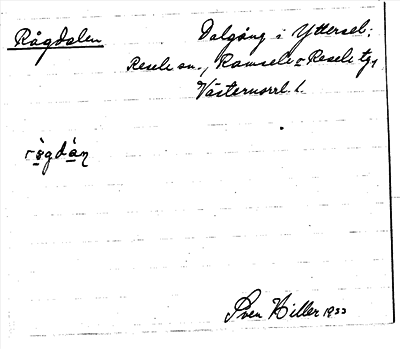 Rågdalen
Dalgång i Yttersel;
Resele sn., Ramsele o Resele tg,
Västernorrl. l.
rågdàn̥
Sven Hiller 1933